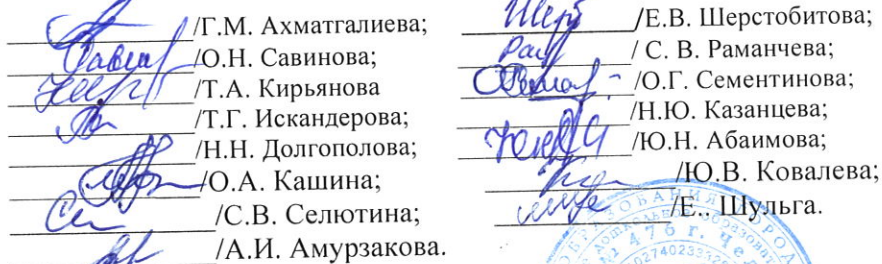 /Г.М. Ахматгалиева;
/О.Н. Савинова;
/Т.А. Кирьянова
/Т.Г. Искандерова;
/Н.Н. Долгополова;
/О.А. Кашина;
/С.В. Селютина;
/А.И. Амурзакова.
/Е.В. Шерстобитова;
/ С. В. Раманчева;
/О.Г. Сементинова;
/Н.Ю. Казанцева;
/Ю.Н. Абаимова;
/Ю.В. Ковалева;
/Е.. Шульга.